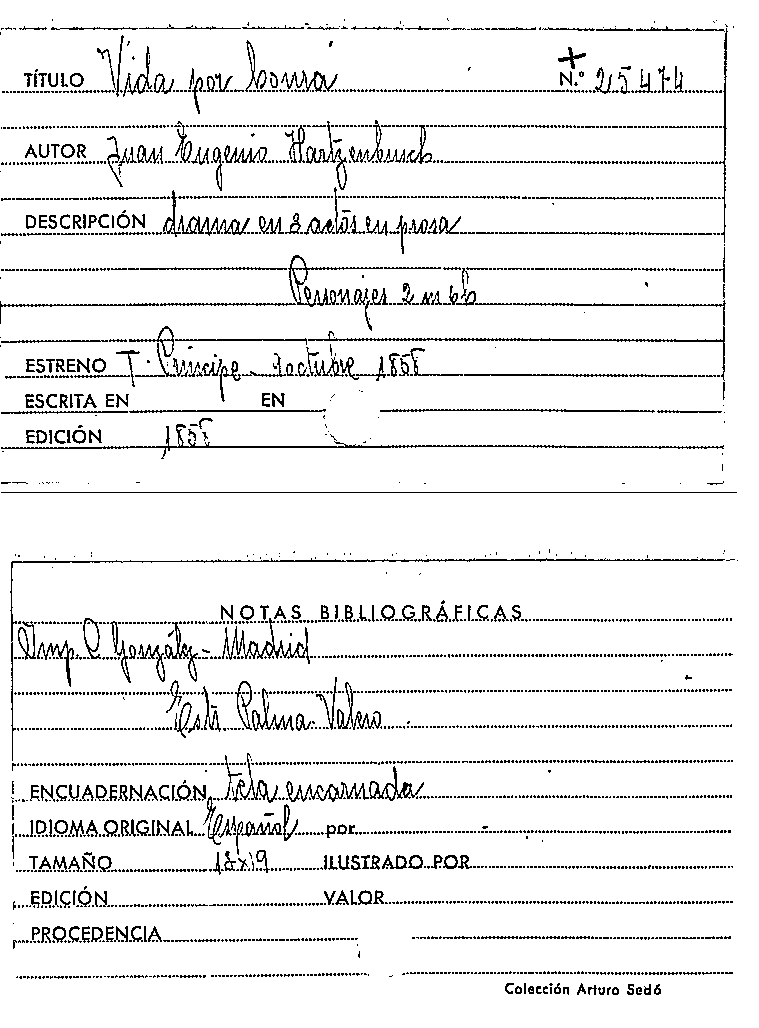 TÍTULO Vida por honra N.º 25474
AUTOR Juan Eugenio Hartzenbusch
DESCRIPCIÓN drama en 3 actos en prosa
Personajes 2 m 6h
ESTRENO T. Príncipe - octubre 1858
ESCRITA EN EN
EDICIÓN 1858
NOTAS BIBLIOGRÁFICAS
Imp C González - Madrid
Estr Palma. Valero
ENCUADERNACIÓN tela encarnada
IDIOMA ORIGINAL Español por
TAMAÑO 12x19 ILUSTRADO POR
EDICIÓN VALOR
PROCEDENCIA
Colección Arturo Sedó